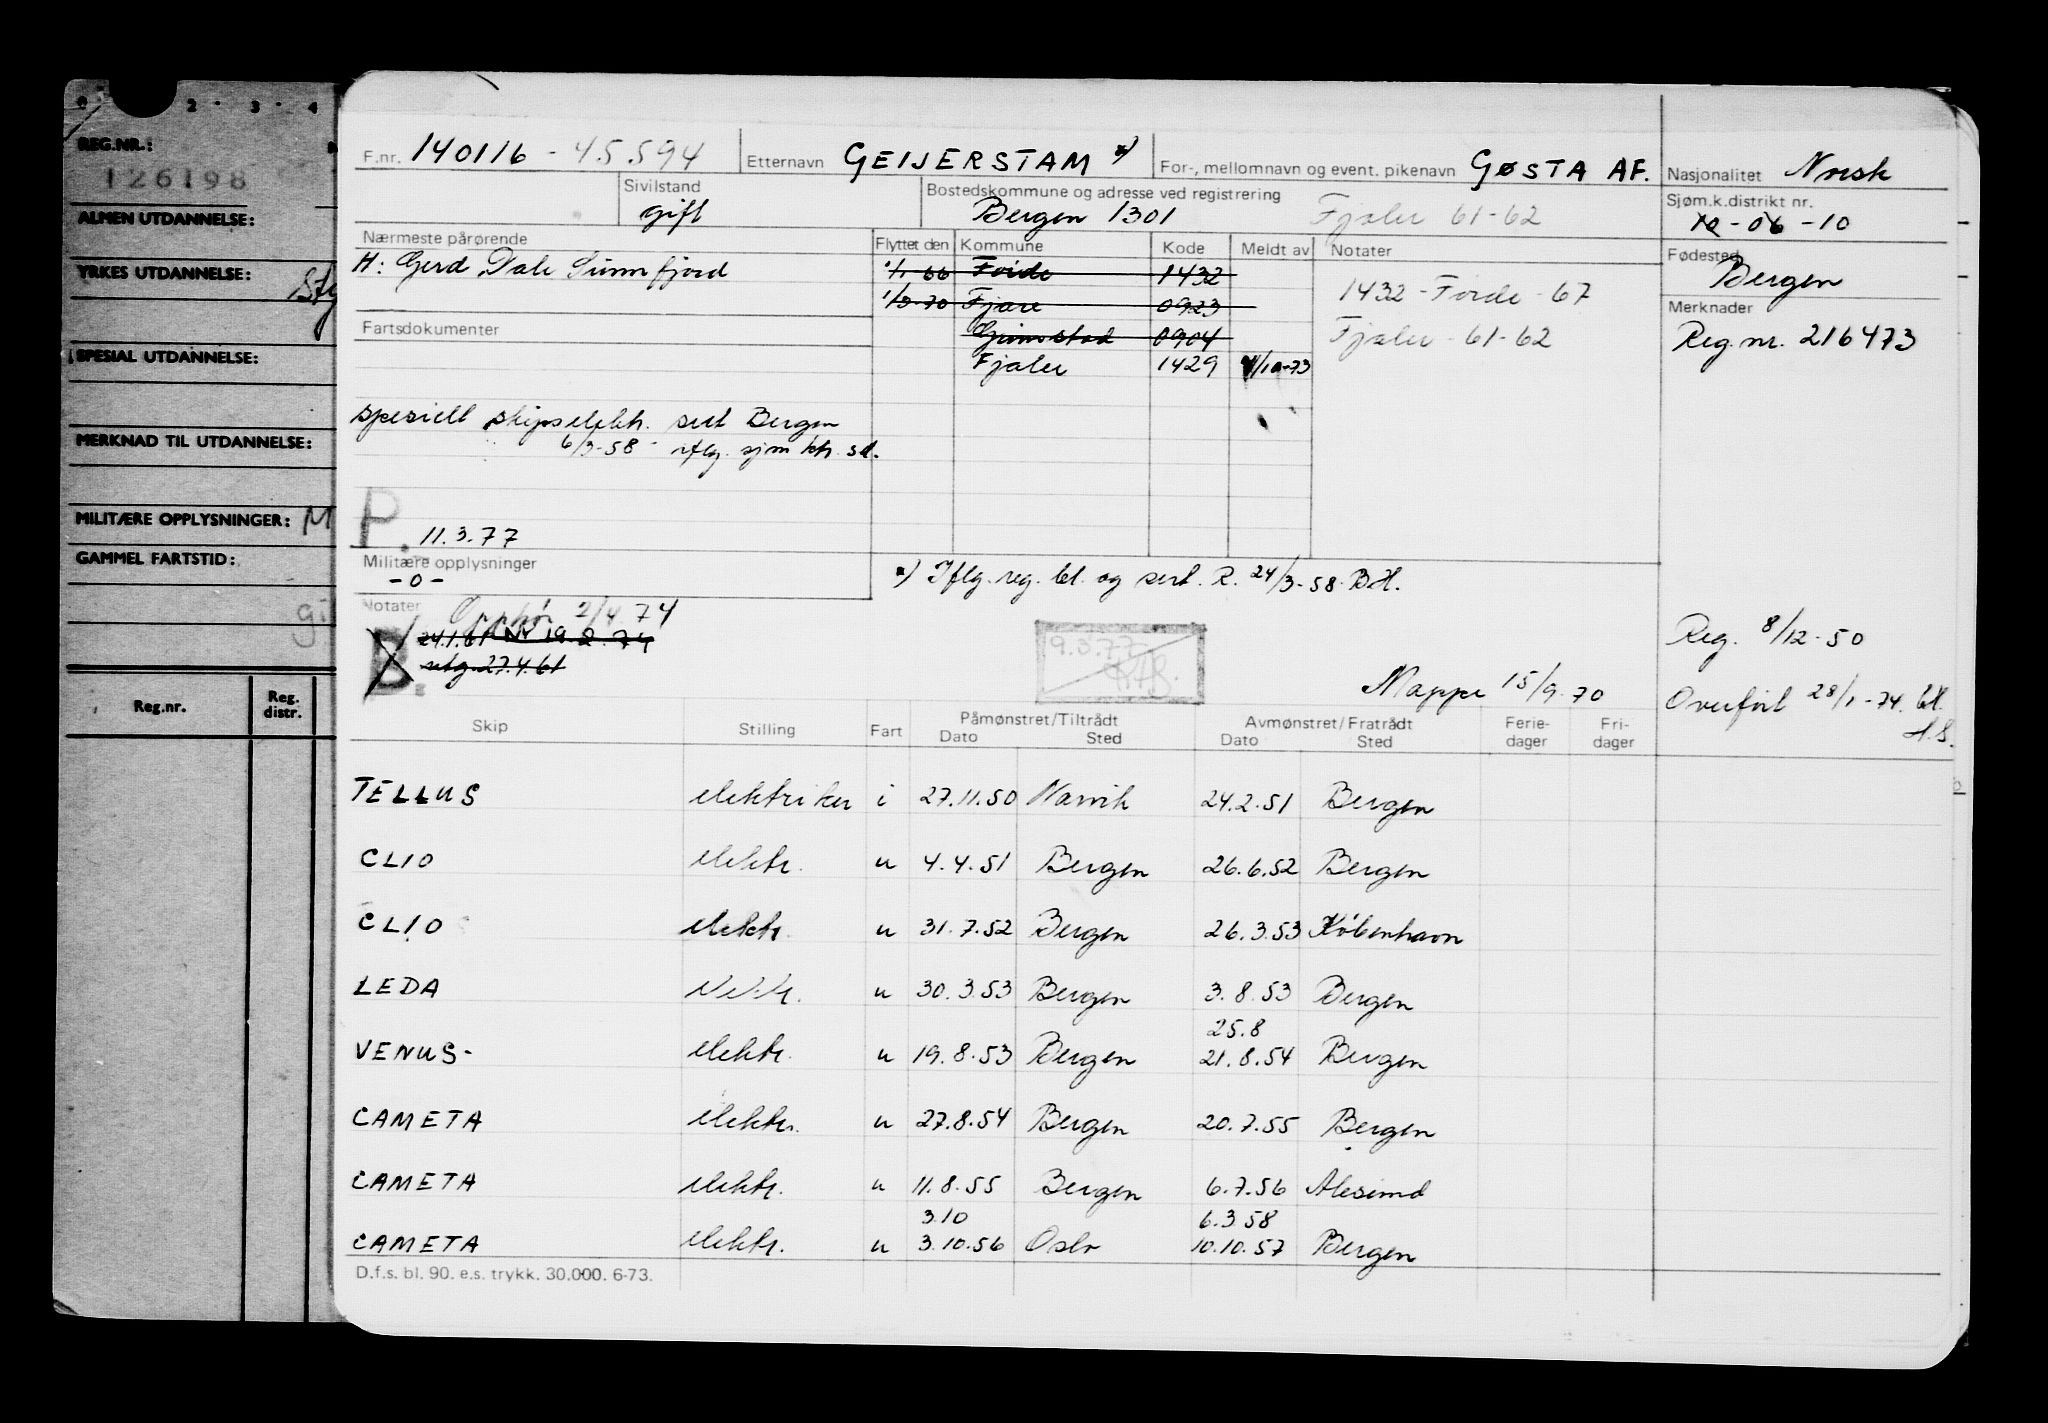 2 · 3 · 4
REG.NR.:
126198
ALMEN UTDANNELSE:
YRKES UTDANNELSE:
SPESIAL UTDANNELSE:
MERKNAD TIL UTDANNELSE:
MILITÆRE OPPLYSNINGER: M
GAMMEL FARTSTID:
Reg.nr. Reg. distr.
F.nr. 140116 - 45.594 Etternavn GEIJERSTAM *) For-, mellomnavn og event. pikenavn GØSTA AF. Nasjonalitet Norsk
Sivilstand gift Bostedskommune og adresse ved registrering Bergen 1301 Fjaler 61-62 Sjøm.k.distrikt nr. 10-06-10
Nærmeste pårørende Flyttet den Kommune Kode Meldt av Notater Fødested Bergen
H: Gerd Dale Sunnfjord 1/1-66 Førde 1432 1432 - Førde - 67 Merknader
1/3-70 Fjære 0923 Reg. nr. 216473
Fartsdokumenter Grimstad 0904 Fjaler - 61-62
Fjaler 1429 /10-73
spesiell skipselektr. sert Bergen
6/3-58 - iflg. sjm.ktr. sd.
P. 11.3.77
Militære opplysninger
- 0 -
*) Iflg. reg. bl. og sert. R. 24/3-58 B.H.
Notater Opphør 2/4 74
B. 24.1.61 NY 19.2.74
utg. 27.4.61
9.3.77
Mappe 15/9-70
Reg. 8/12-50
Overført 28/1-74. bl.
Skip Stilling Fart Påmønstret/Tiltrådt Dato Sted Avmønstret/Fratrådt Dato Sted Ferie-dager Fri-dager
TELLUS elektriker i 27.11.50 Narvik 24.2.51 Bergen
CLIO elektr. u 4.4.51 Bergen 26.6.52 Bergen
CLIO elektr. u 31.7.52 Bergen 26.3.53 København
LEDA elektr. u 30.3.53 Bergen 3.8.53 Bergen
25.8
VENUS- elektr. u 19.8.53 Bergen 21.8.54 Bergen
CAMETA elektr. u 27.8.54 Bergen 20.7.55 Bergen
CAMETA elektr. u 11.8.55 Bergen 6.7.56 Ålesund
3.10 6.3.58
CAMETA elektr. u 3.10.56 Oslo 10.10.57 Bergen
D.f.s. bl. 90. e.s. trykk. 30.000. 6-73.